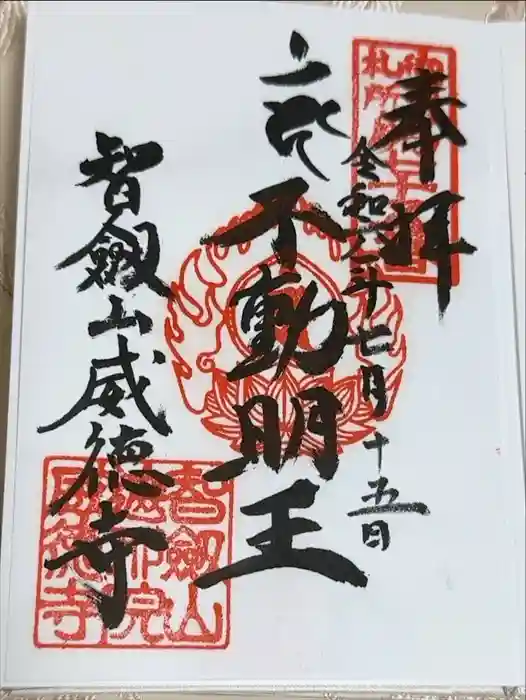 奉拝
令和六年七月十五日
不動明王
智劔山威徳寺
智劔山
遍照院
威徳寺